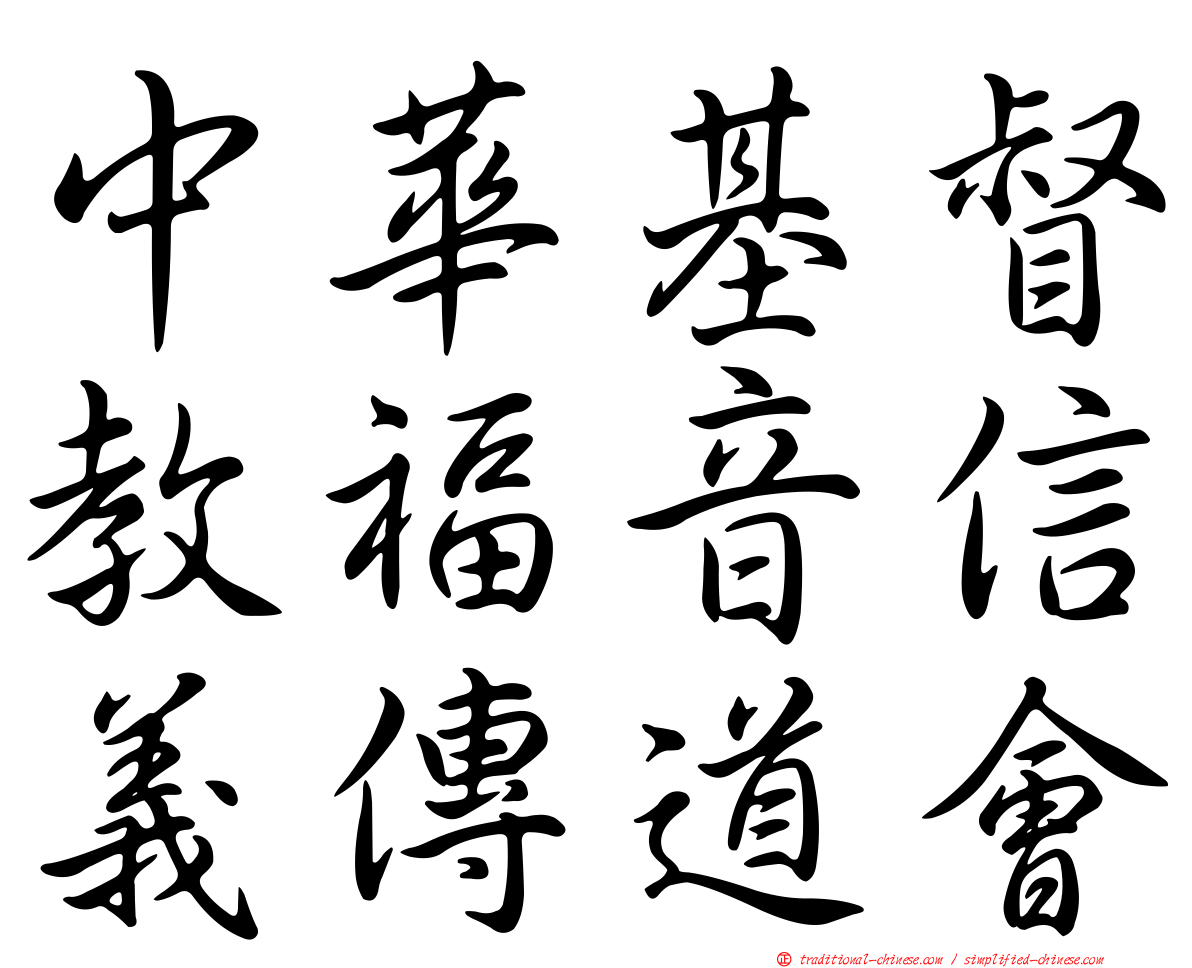 中華基督
教福音信
義傳道會
正 traditional-chinese.com / simplified-chinese.com